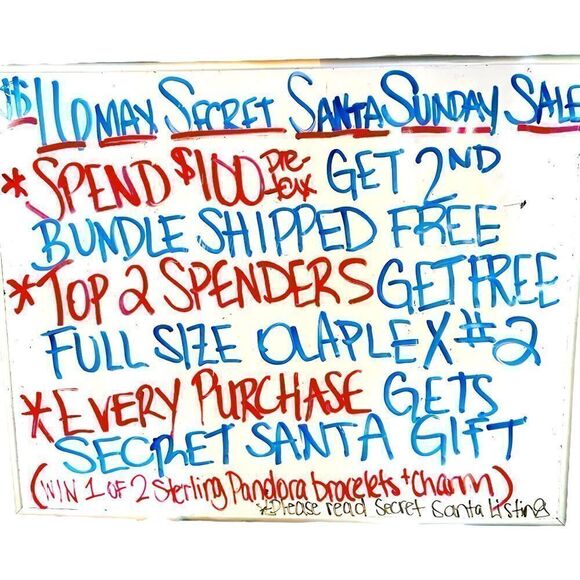 $$110 MAX SECRET SANTA SUNDAY SALE
*SPEND $100 PRE-tax GET 2ND
BUNDLE SHIPPED FREE
*TOP 2 SPENDERS GET FREE
FULL SIZE OLAPLEX #2
*EVERY PURCHASE GETS
SECRET SANTA GIFT
(WIN 1 OF 2 Sterling Pandora bracelets + Charm)
*Please read Secret Santa listing